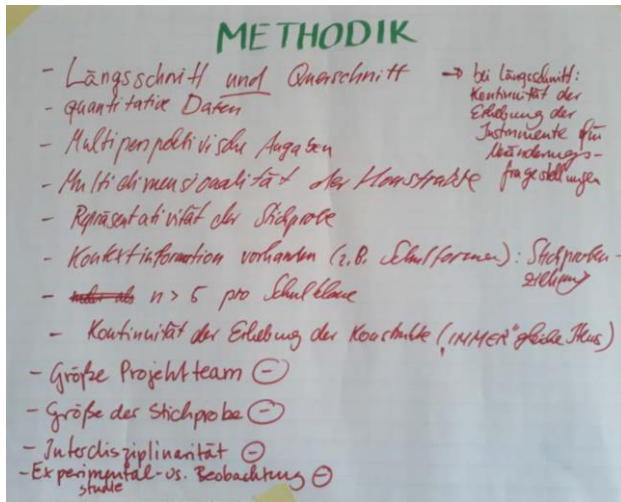 METHODIK
- Längsschnitt und Querschnitt
→ bei Längsschnitt:
Kontinuität der
Erhebung der
Instrumente für
Veränderungs-
fragestellungen
- quantitative Daten
- Multiperspektivische Angaben
- Multidimensionalität der Konstrukte
- Repräsentativität der Stichprobe
- Kontextinformation vorhanden (z.B. Schulformen): Stichproben-
ziehung
- mehr als n > 5 pro Schulklasse
- Kontinuität der Erhebung der Konstrukte ("IMMER" gleiche Items)
- Größe Projektteam (-)
- Größe der Stichprobe (-)
- Interdisziplinarität (-)
- Experimental- vs. Beobachtung (-)
studie